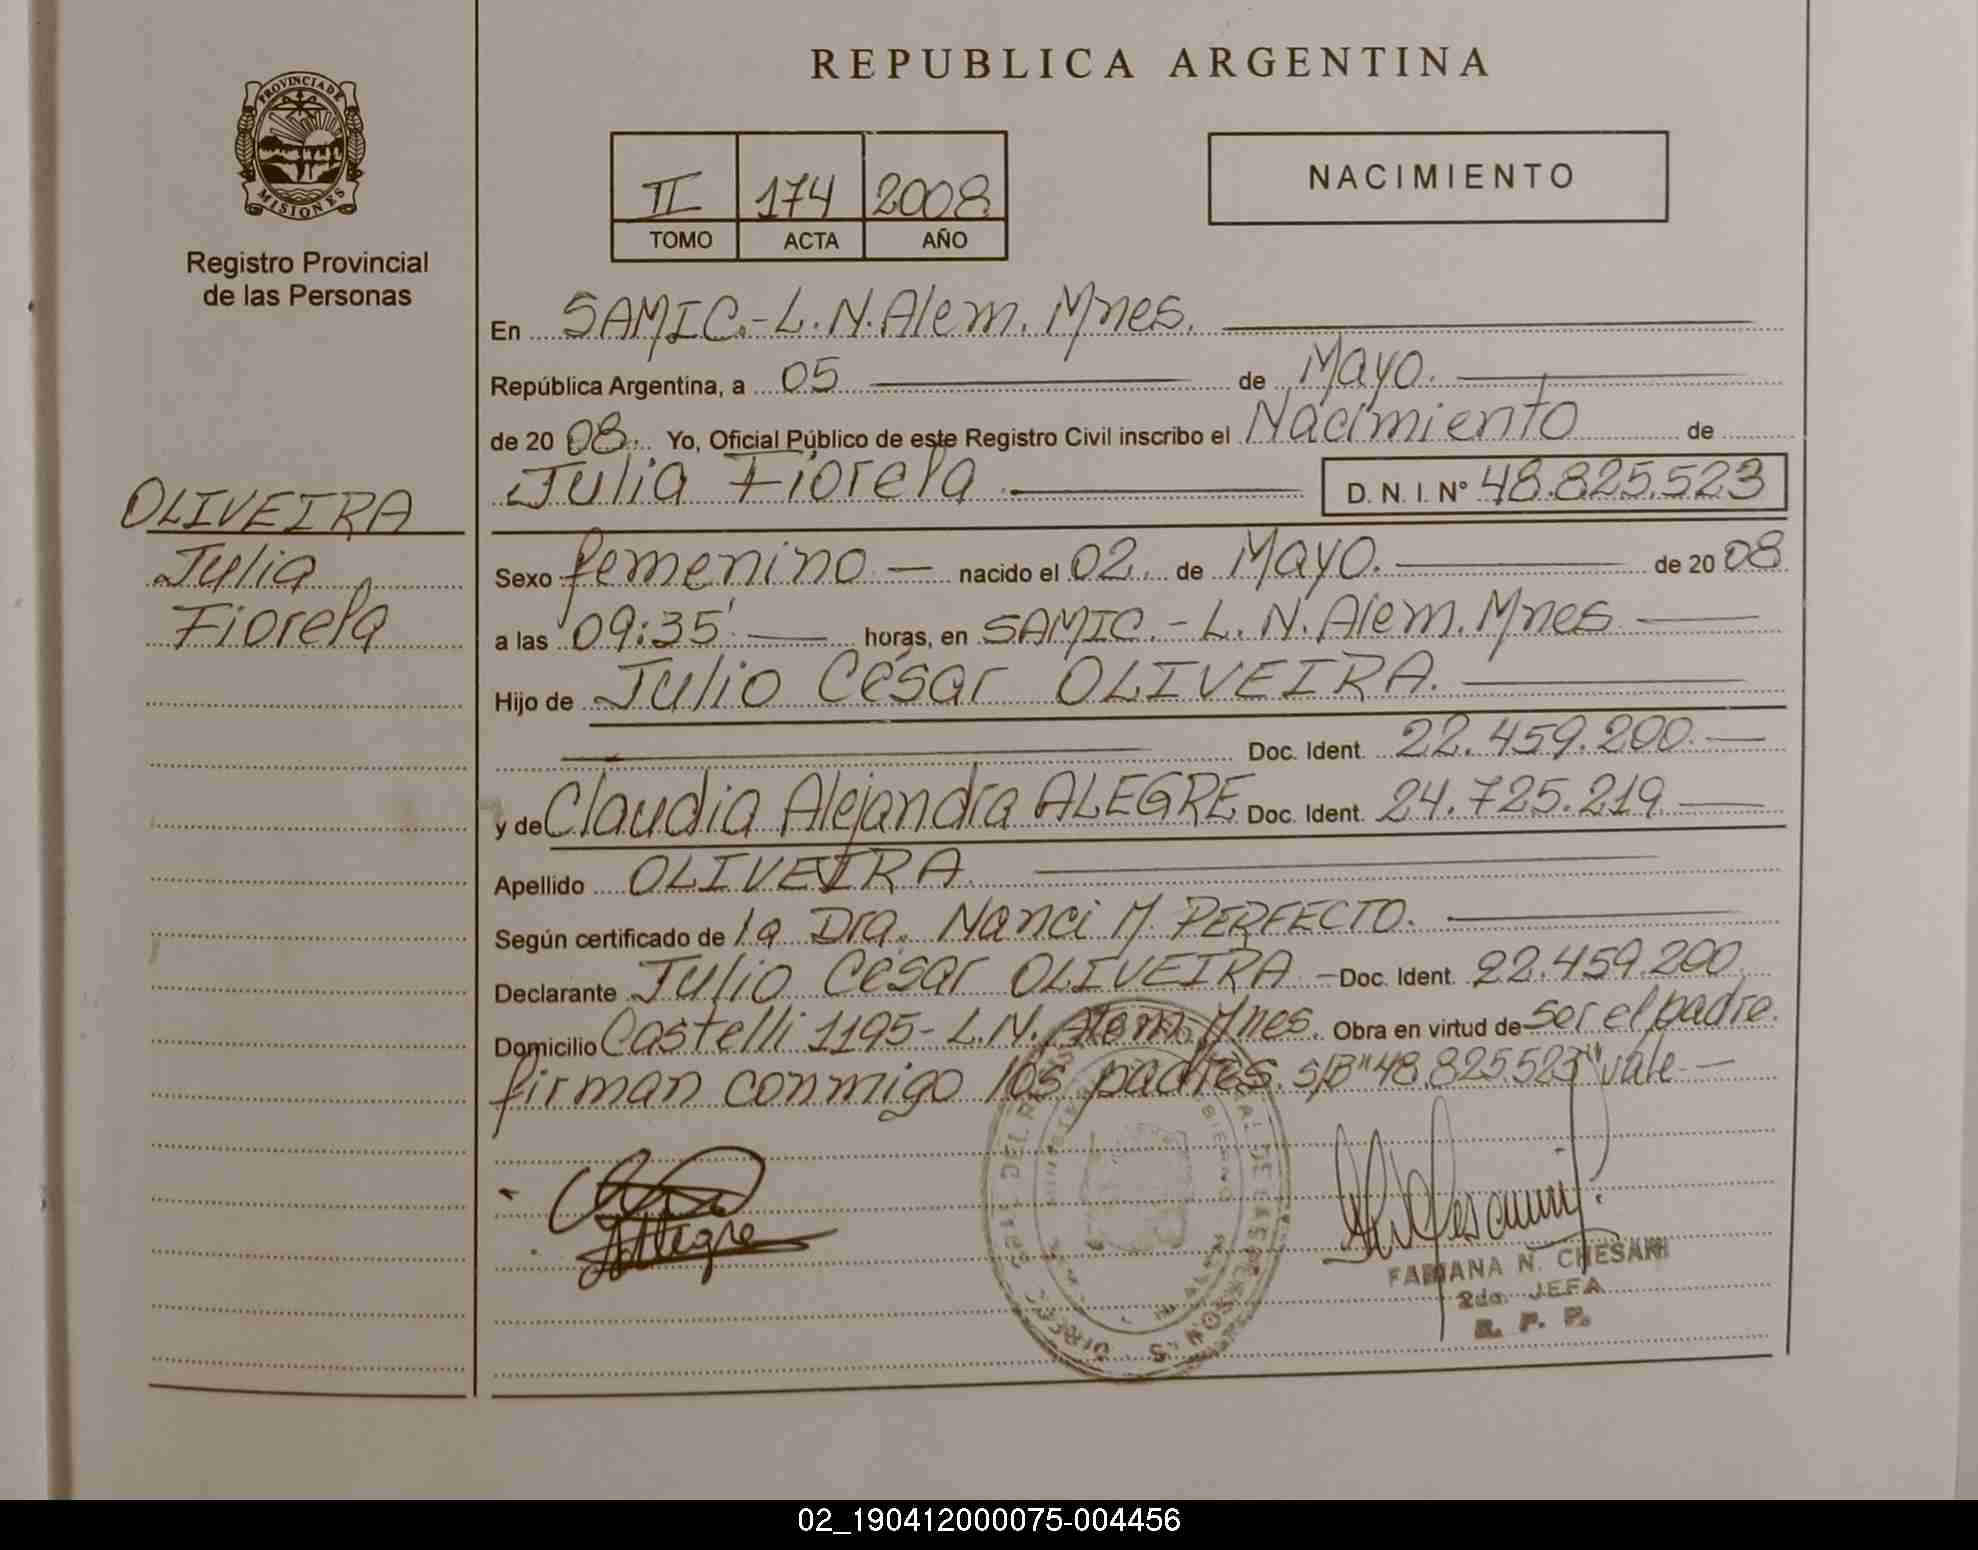 REPUBLICA ARGENTINA
PROVINCIA DE
MISIONES
Registro Provincial
de las Personas
II 174 2008
TOMO ACTA AÑO
NACIMIENTO
En SAMIC.-L.N.Alem. Mnes.
República Argentina, a 05 de Mayo.
de 20 08. Yo, Oficial Público de este Registro Civil inscribo el Nacimiento de
Julia Fiorela D. N. I. N° 48.825.523
OLIVEIRA
Julia
Fiorela
Sexo femenino nacido el 02. de Mayo. de 20 08
a las 09:35' horas, en SAMIC.-L.N.Alem.Mnes
Hijo de Julio César OLIVEIRA.
Doc. Ident. 22.459.200
y de Claudia Alejandra ALEGRE Doc. Ident. 24.725.219
Apellido OLIVEIRA
Según certificado de la Dra. Nanci M. PERFECTO.
Declarante Julio César OLIVEIRA - Doc. Ident. 22.459.200
Domicilio Castelli 1195- L.N. Alem Mnes. Obra en virtud de ser el padre.
firman conmigo los padres. S/B "48.825.523" vale -
Alegre
FABIANA N. CHESANI
2da. JEFA
R. P. P.
02_190412000075-004456